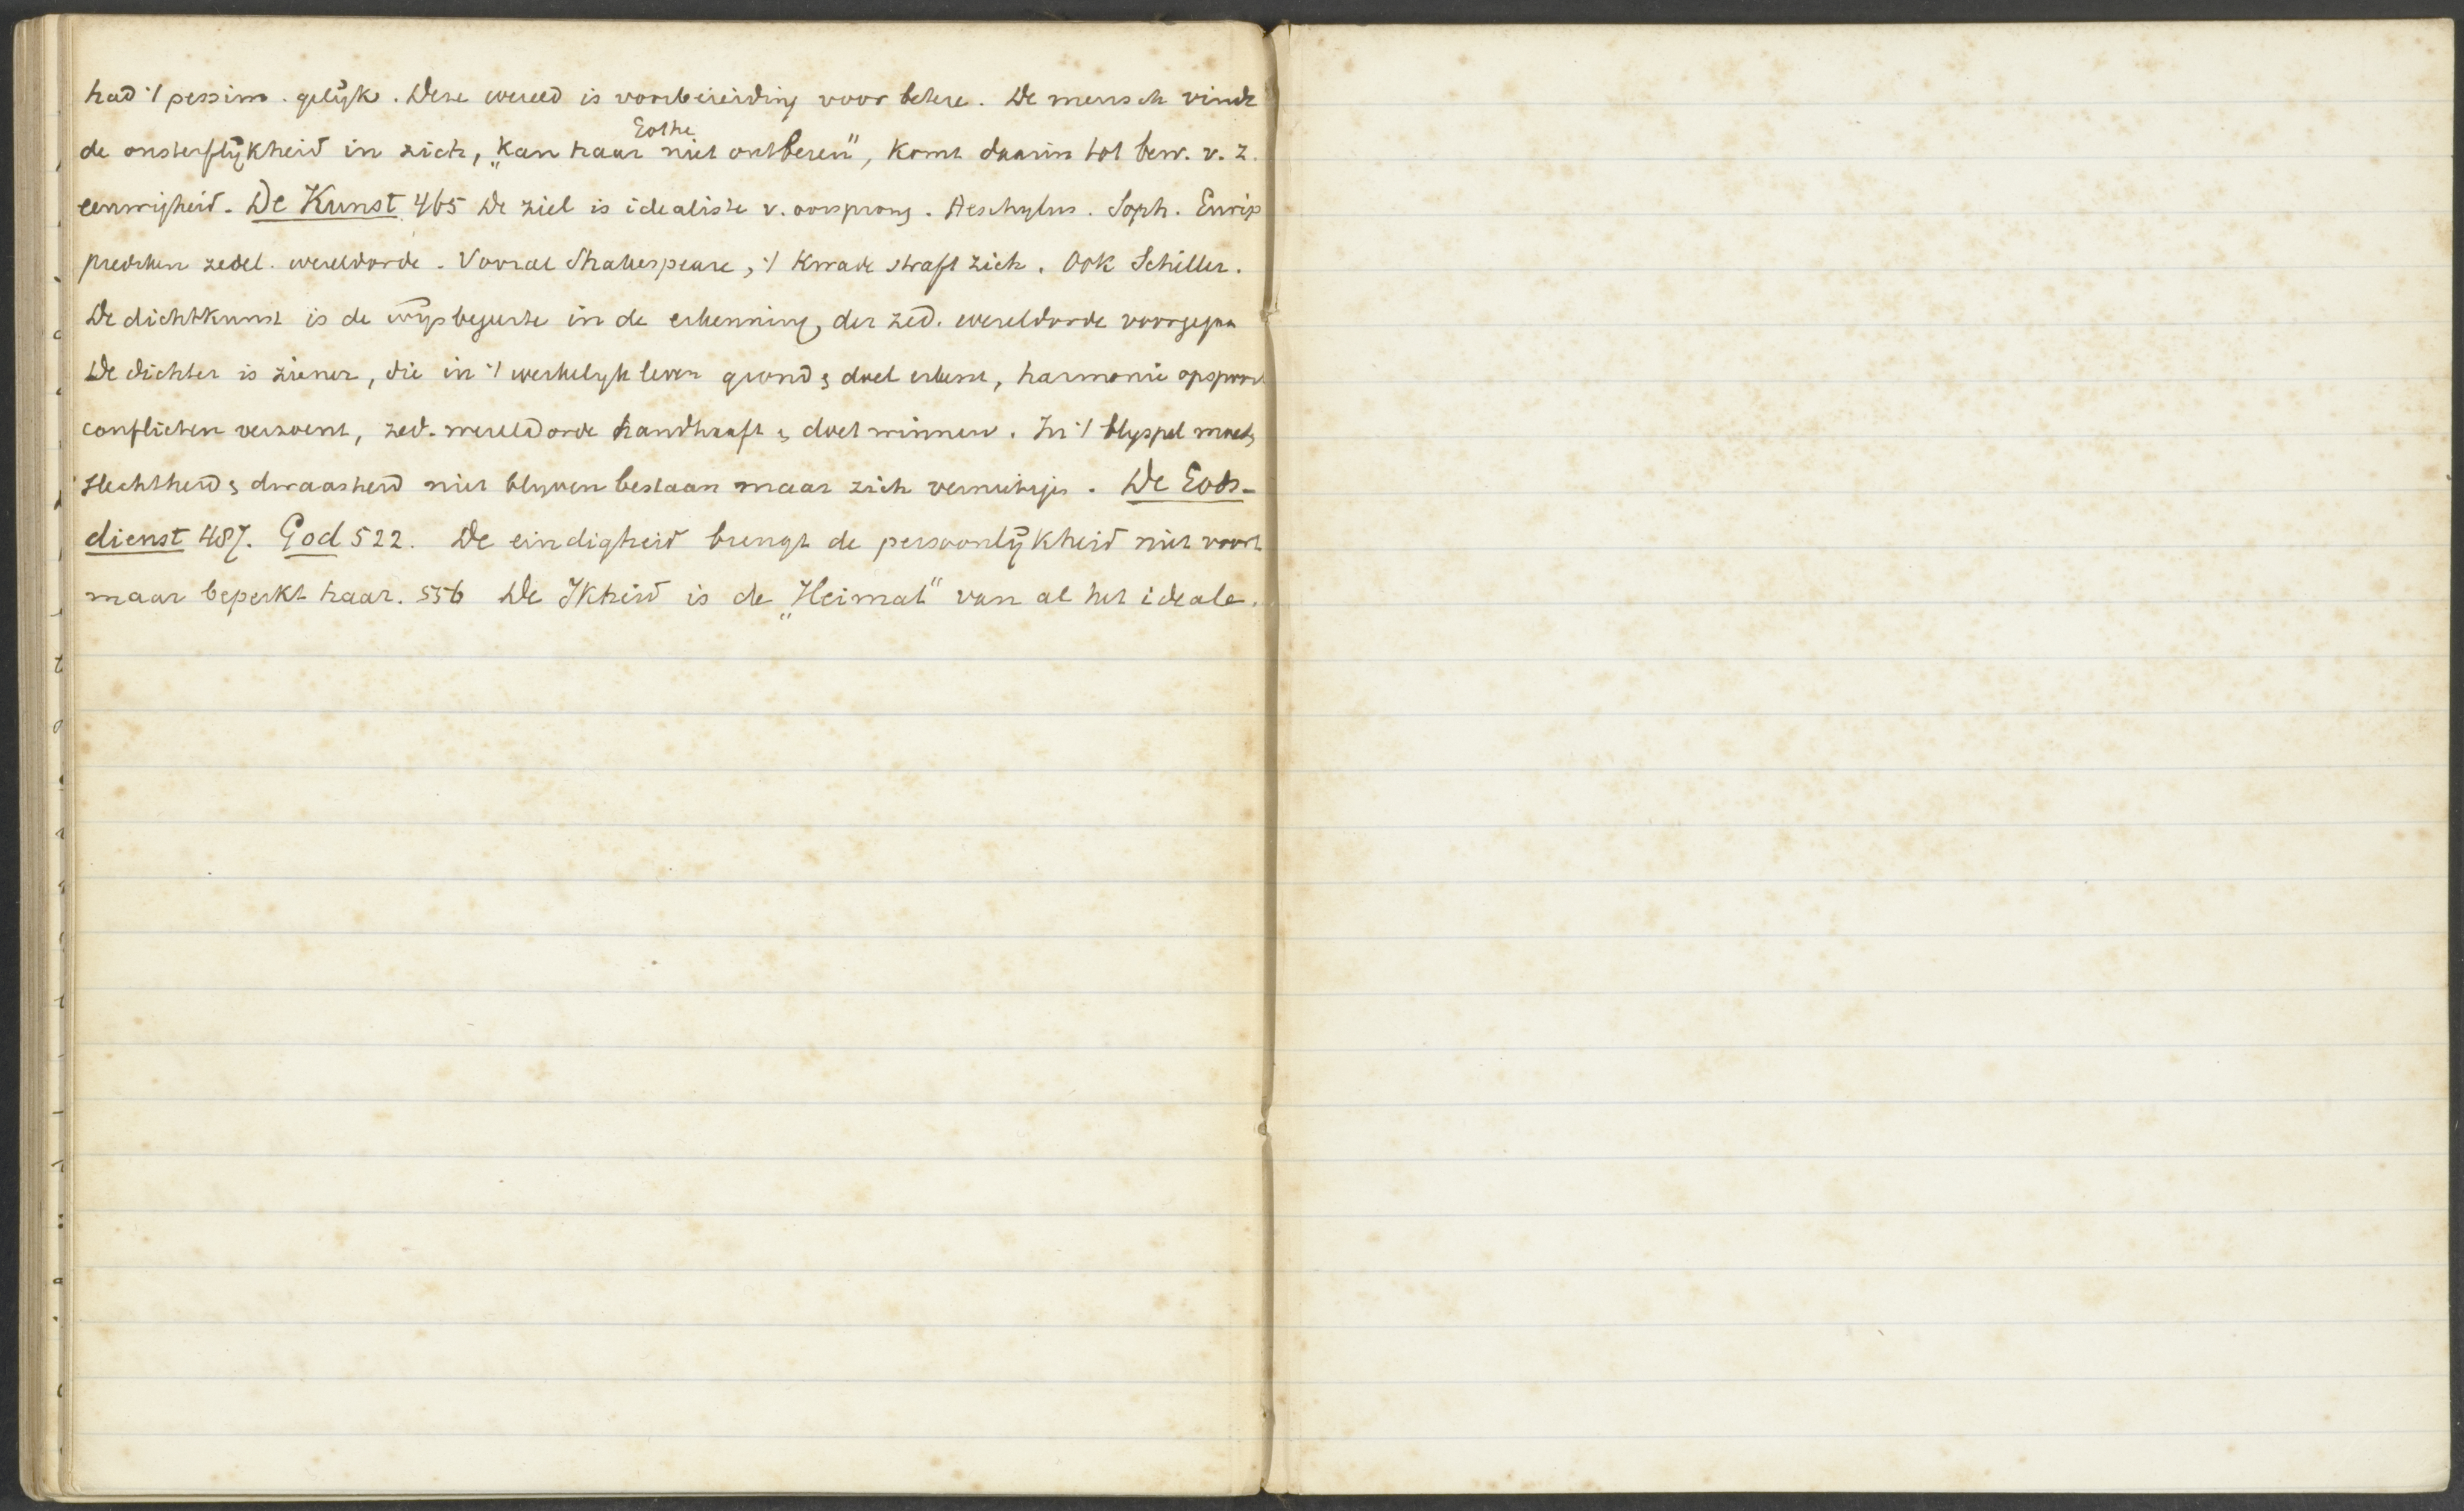 had 't pessim. gelijk. Deze wereld is voorbereiding voor betere. De mensch vindt
Gothe
de onsterflijkheid in zich, „kan haar niet ontberen", komt daarin tot bew. v. z.
eenwigheid. De Kunst 465 De ziel is idealiste v. oorsprong. Aeschylus. Soph. Eurip
prediken zedel. wereldorde. Vooral Shakespeare, 't kwade straft zich. Ook Schiller.
De dichtkunst is de wijsbegeerte in de erkenning der zed. wereldorde voorgegaan
De dichter is ziener, die in 't werkelijk leven grond & doel erkent, harmonie opspoort
conflicten verzoent, zed. wereldorde handhaaft & doet winnen. In 't blijspel moet
slechtheid & dwaasheid niet blijven bestaan maar zich vernietigen. De Gods-
dienst 487. God 522. De eindigheid brengt de persoonlijkheid niet voort
maar beperkt haar. 556 De Ikheid is de „Heimat" van al het ideale.